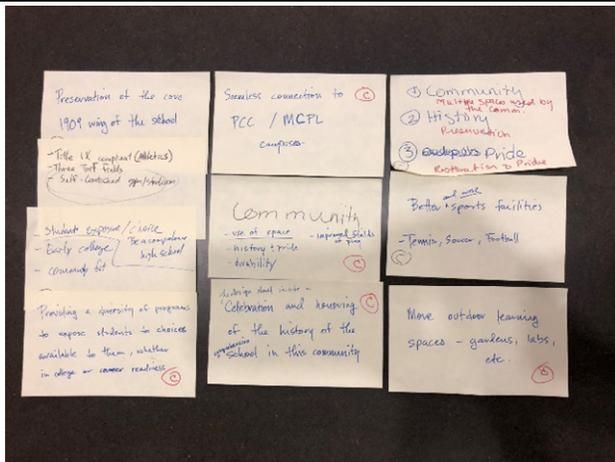 Preservation of the core
1909 wing of the school
- Title IX compliant (Athletics)
- Three Turf fields
- Self-Contained gym/stadium
Student exposure/choice
- Early college
- community fit
Be a comprehensive
high school
Providing a diversity of programs
to expose students to choices
available to them, whether
in college or career readiness
C
Seamless connection to
PCC / MCPL
campuses.
C
Community
- use of space
- history & pride
- durability
- improved fields
C
Celebration and honoring
of the history of the
school in this community
C
① Community
Multiple spaces used by
the Comm.
② History
Preservation
③ Pride
Restoration & Pride
Better and more sports facilities
- Tennis, Soccer, Football
C
More outdoor learning
spaces - gardens, labs,
etc.